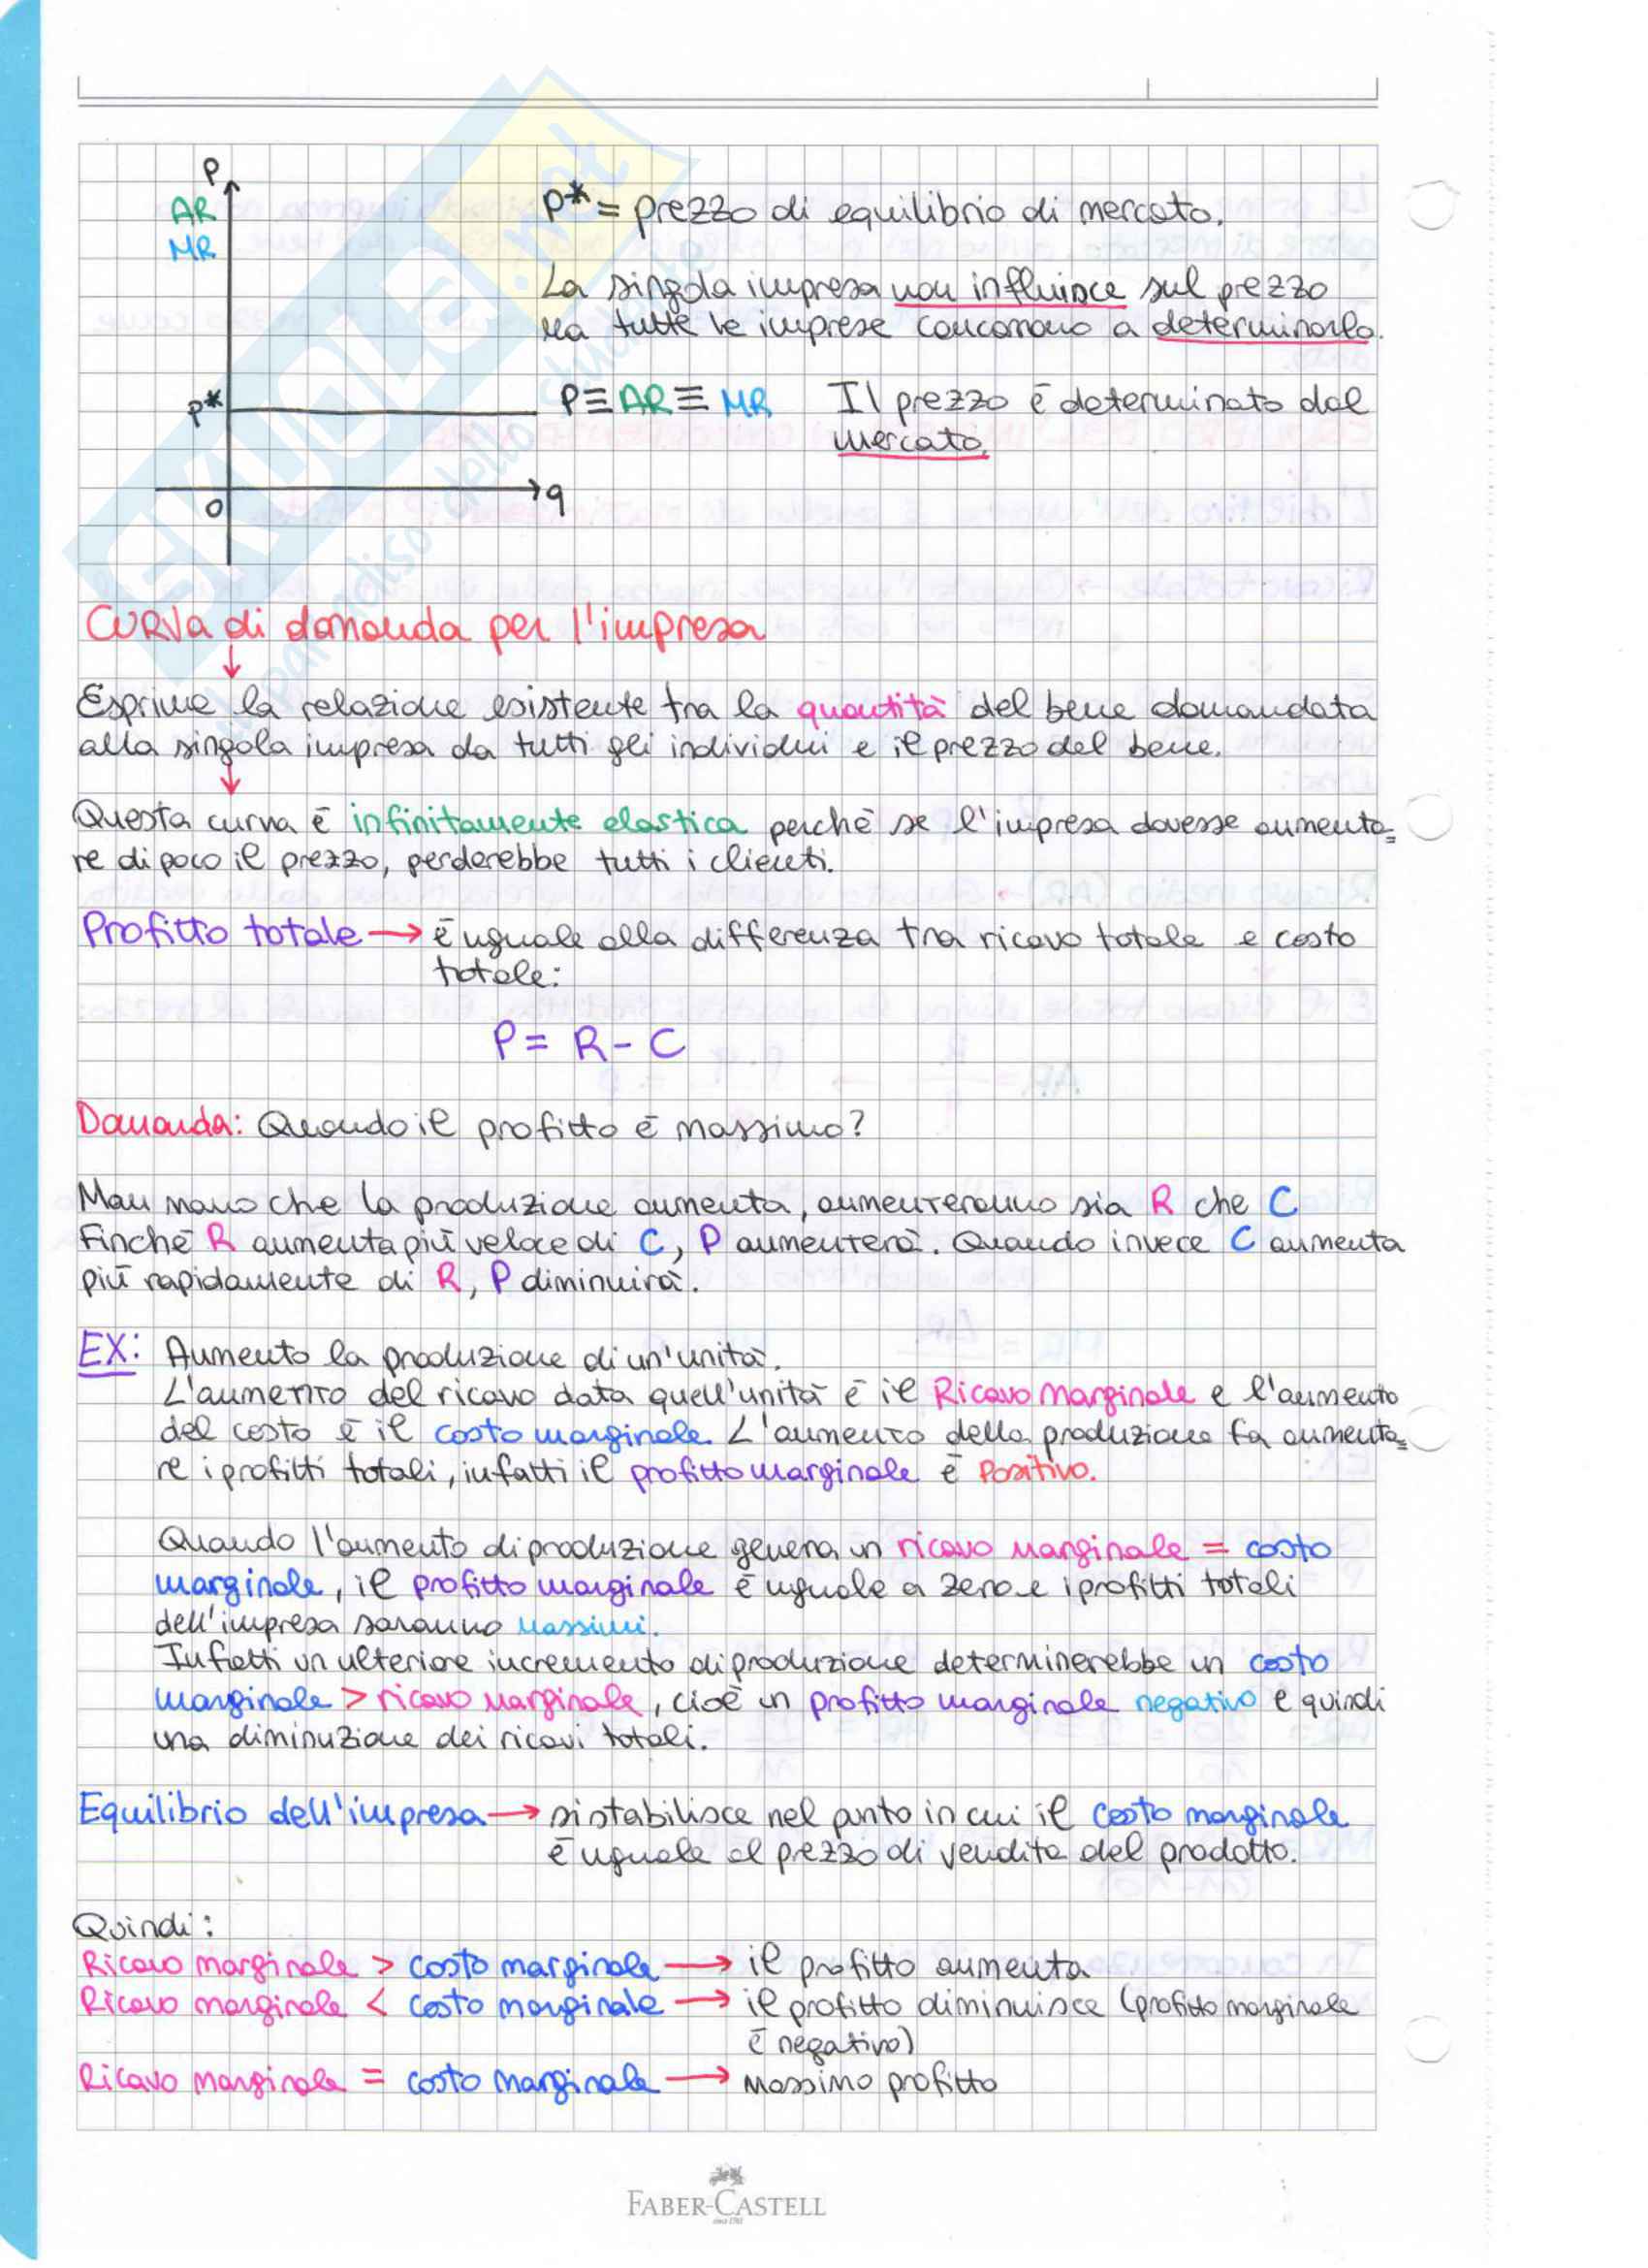 P
AR
MR
P* = prezzo di equilibrio di mercato.
La singola impresa non influisce sul prezzo
ma tutte le imprese concorrono a determinarlo.
P*
P≡AR≡MR Il prezzo è determinato dal
mercato.
0
q
CURVa di domanda per l'impresa
↓
Esprime la relazione esistente tra la quantità del bene domandata
alla singola impresa da tutti gli individui e il prezzo del bene.
↓
Questa curva è infinitamente elastica perchè se l'impresa dovesse aumenta=
re di poco il prezzo, perderebbe tutti i clienti.
Profitto totale → è uguale alla differenza tra ricavo totale e costo
totale:
P = R - C
Domanda: Quando il profitto è massimo?
Man mano che la produzione aumenta, aumenteranno sia R che C
Finchè R aumenta più veloce di C, P aumenterà. Quando invece C aumenta
più rapidamente di R, P diminuirà.
EX: Aumento la produzione di un'unità.
L'aumento del ricavo data quell'unità è il Ricavo marginale e l'aumento
del costo è il costo marginale. L'aumento della produzione fa aumenta=
re i profitti totali, infatti il profitto marginale è Positivo.
Quando l'aumento di produzione genera un ricavo marginale = costo
marginale, il profitto marginale è uguale a zero e i profitti totali
dell'impresa saranno massimi.
Infatti un ulteriore incremento di produzione determinerebbe un costo
marginale > ricavo marginale, cioè un profitto marginale negativo e quindi
una diminuzione dei ricavi totali.
Equilibrio dell'impresa → si stabilisce nel punto in cui il costo marginale
è uguale al prezzo di vendita del prodotto.
Quindi:
Ricavo marginale > costo marginale → il profitto aumenta
Ricavo marginale < costo marginale → il profitto diminuisce (profitto marginale
è negativo)
Ricavo marginale = costo marginale → Massimo profitto
FABER-CASTELL
since 1761
SKUOLA.net
il paradiso dello studente